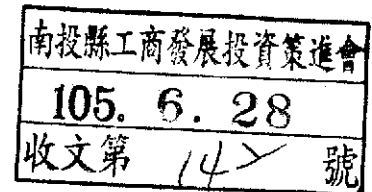 南投縣工商發展投資策進會
105. 6. 28
收文第 142 號